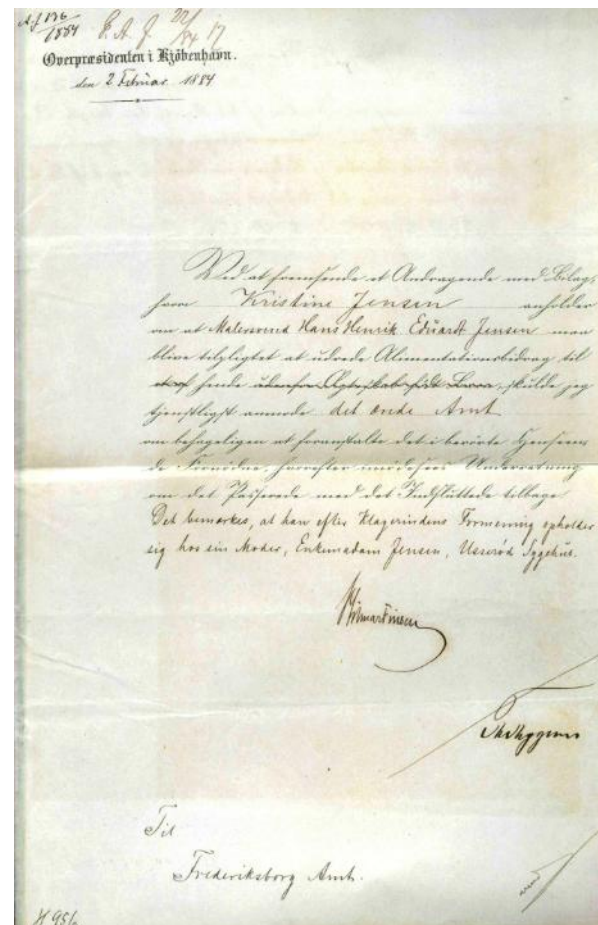 A.J. 136
1884
E. A. J. 22/84 17
Overpræsidenten i Kjöbenhavn.
den 2 Februar 1884
Ved at fremsende et Andragende med Bilag,
hvori Kristine Jensen anholder
om at Malersvend Hans Henrik Eduardt Jensen maa
blive tilpligtet at udrede Alimentationsbidrag til
hende udenfor Ægteskab födt Barn, skulde jeg
tjenstligst anmode det ærede Amt
om behageligen at foranstalte det i berörte Henseen-
de Fornödne, hvorefter imödesees Underretning
om det Passerede med det Indsluttede tilbage.
Det bemærkes, at han efter Klagerindens Formening opholder
sig hos sin Moder, Enkemadam Jensen, Usseröd Sygehus.
Til
Frederiksborg Amt.